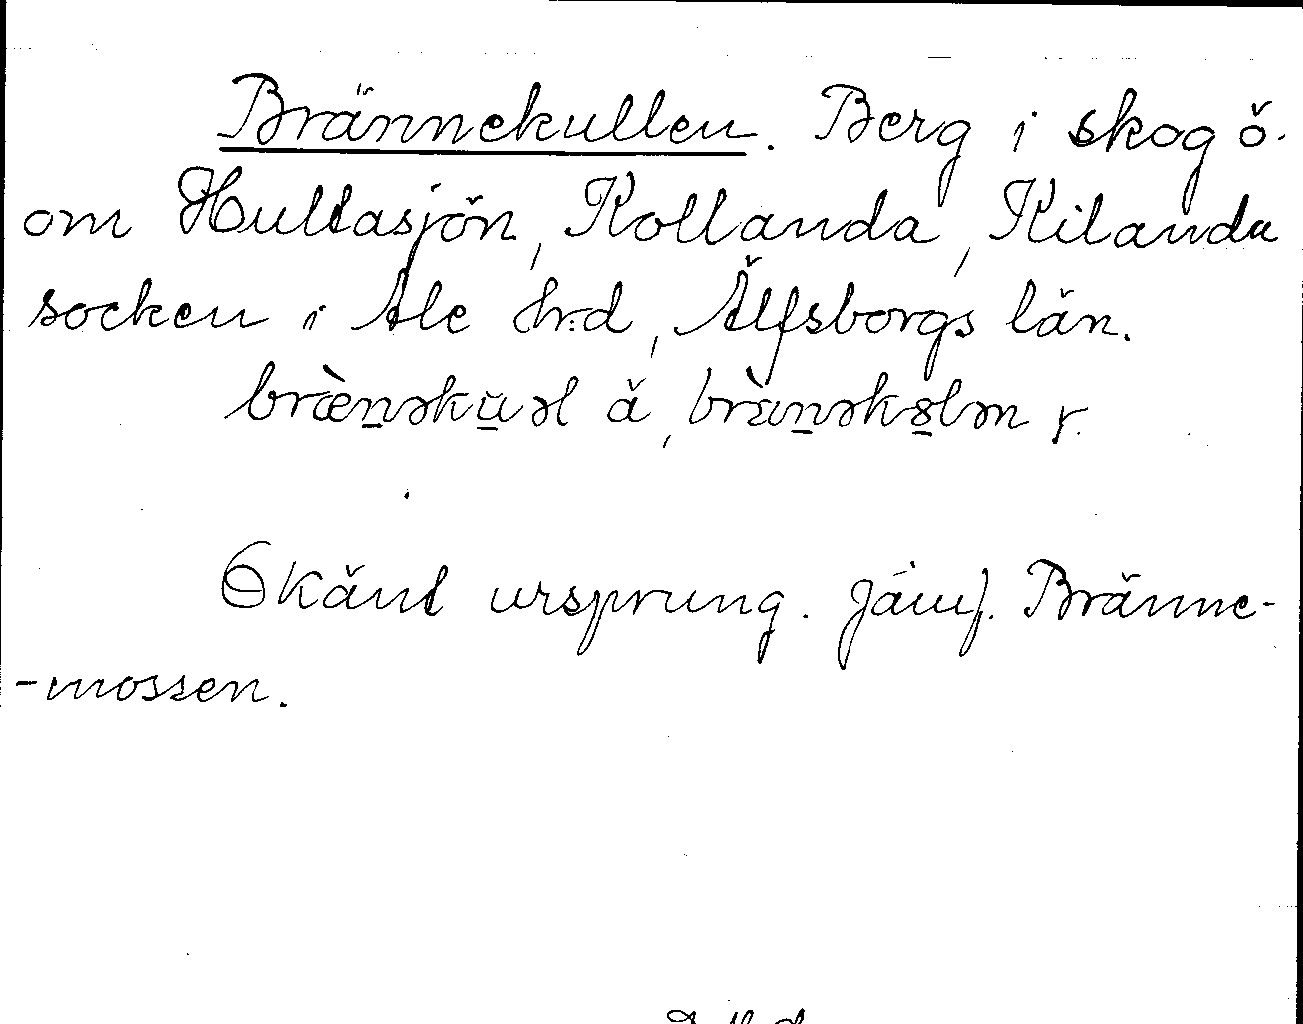 Brännekullen. Berg i skog ö.
om Hultasjön, Kollanda, Kilanda
socken i Ale hrd, Älfsborgs län.
bræ̀nəkuəl ä, brànəkələn r.
Okänt ursprung. Jämf. Bränne-
-mossen.